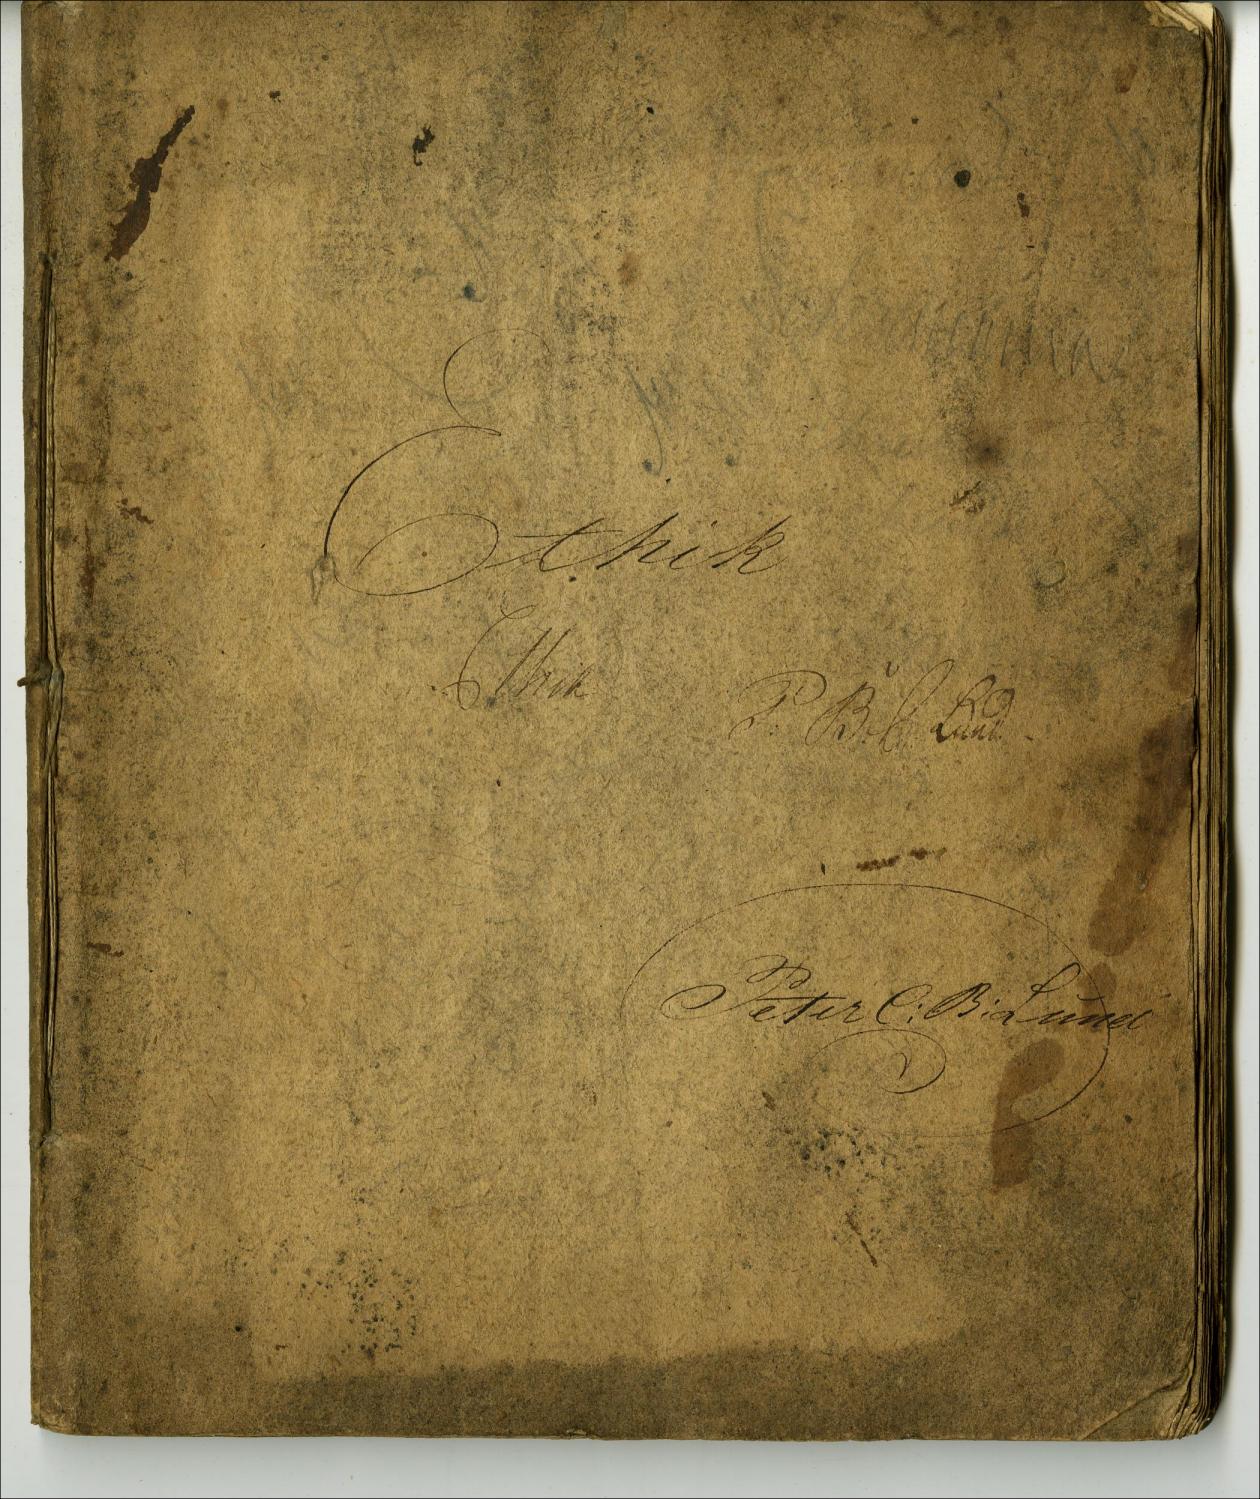 Ethik
Ethik
P. B. C. Lund.
Peter C: B: Lund